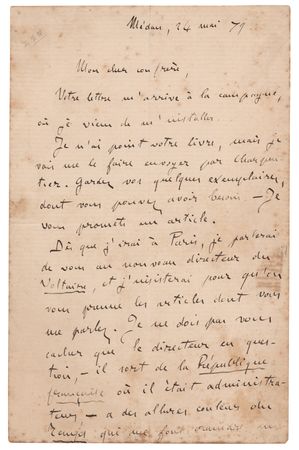 Médan, 24 mai 79
Mon cher confrère,
Votre lettre m'arrive à la campagne,
où je viens de m'installer.
Je n'ai point votre livre, mais je
vais me le faire envoyer par Charpen-
tier. Gardez vos quelques exemplaires,
dont vous pouvez avoir besoin. — Je
vous promets un article.
Dès que j'irai à Paris, je parlerai
de vous au nouveau directeur du
Voltaire, et j'insisterai pour qu'on
vous prenne les articles dont vous
me parlez. Je ne dois pas vous
cacher que le directeur en ques-
tion, — il sort de la République
française où il était administra-
teur, — a des allures couleur du
temps qui me font